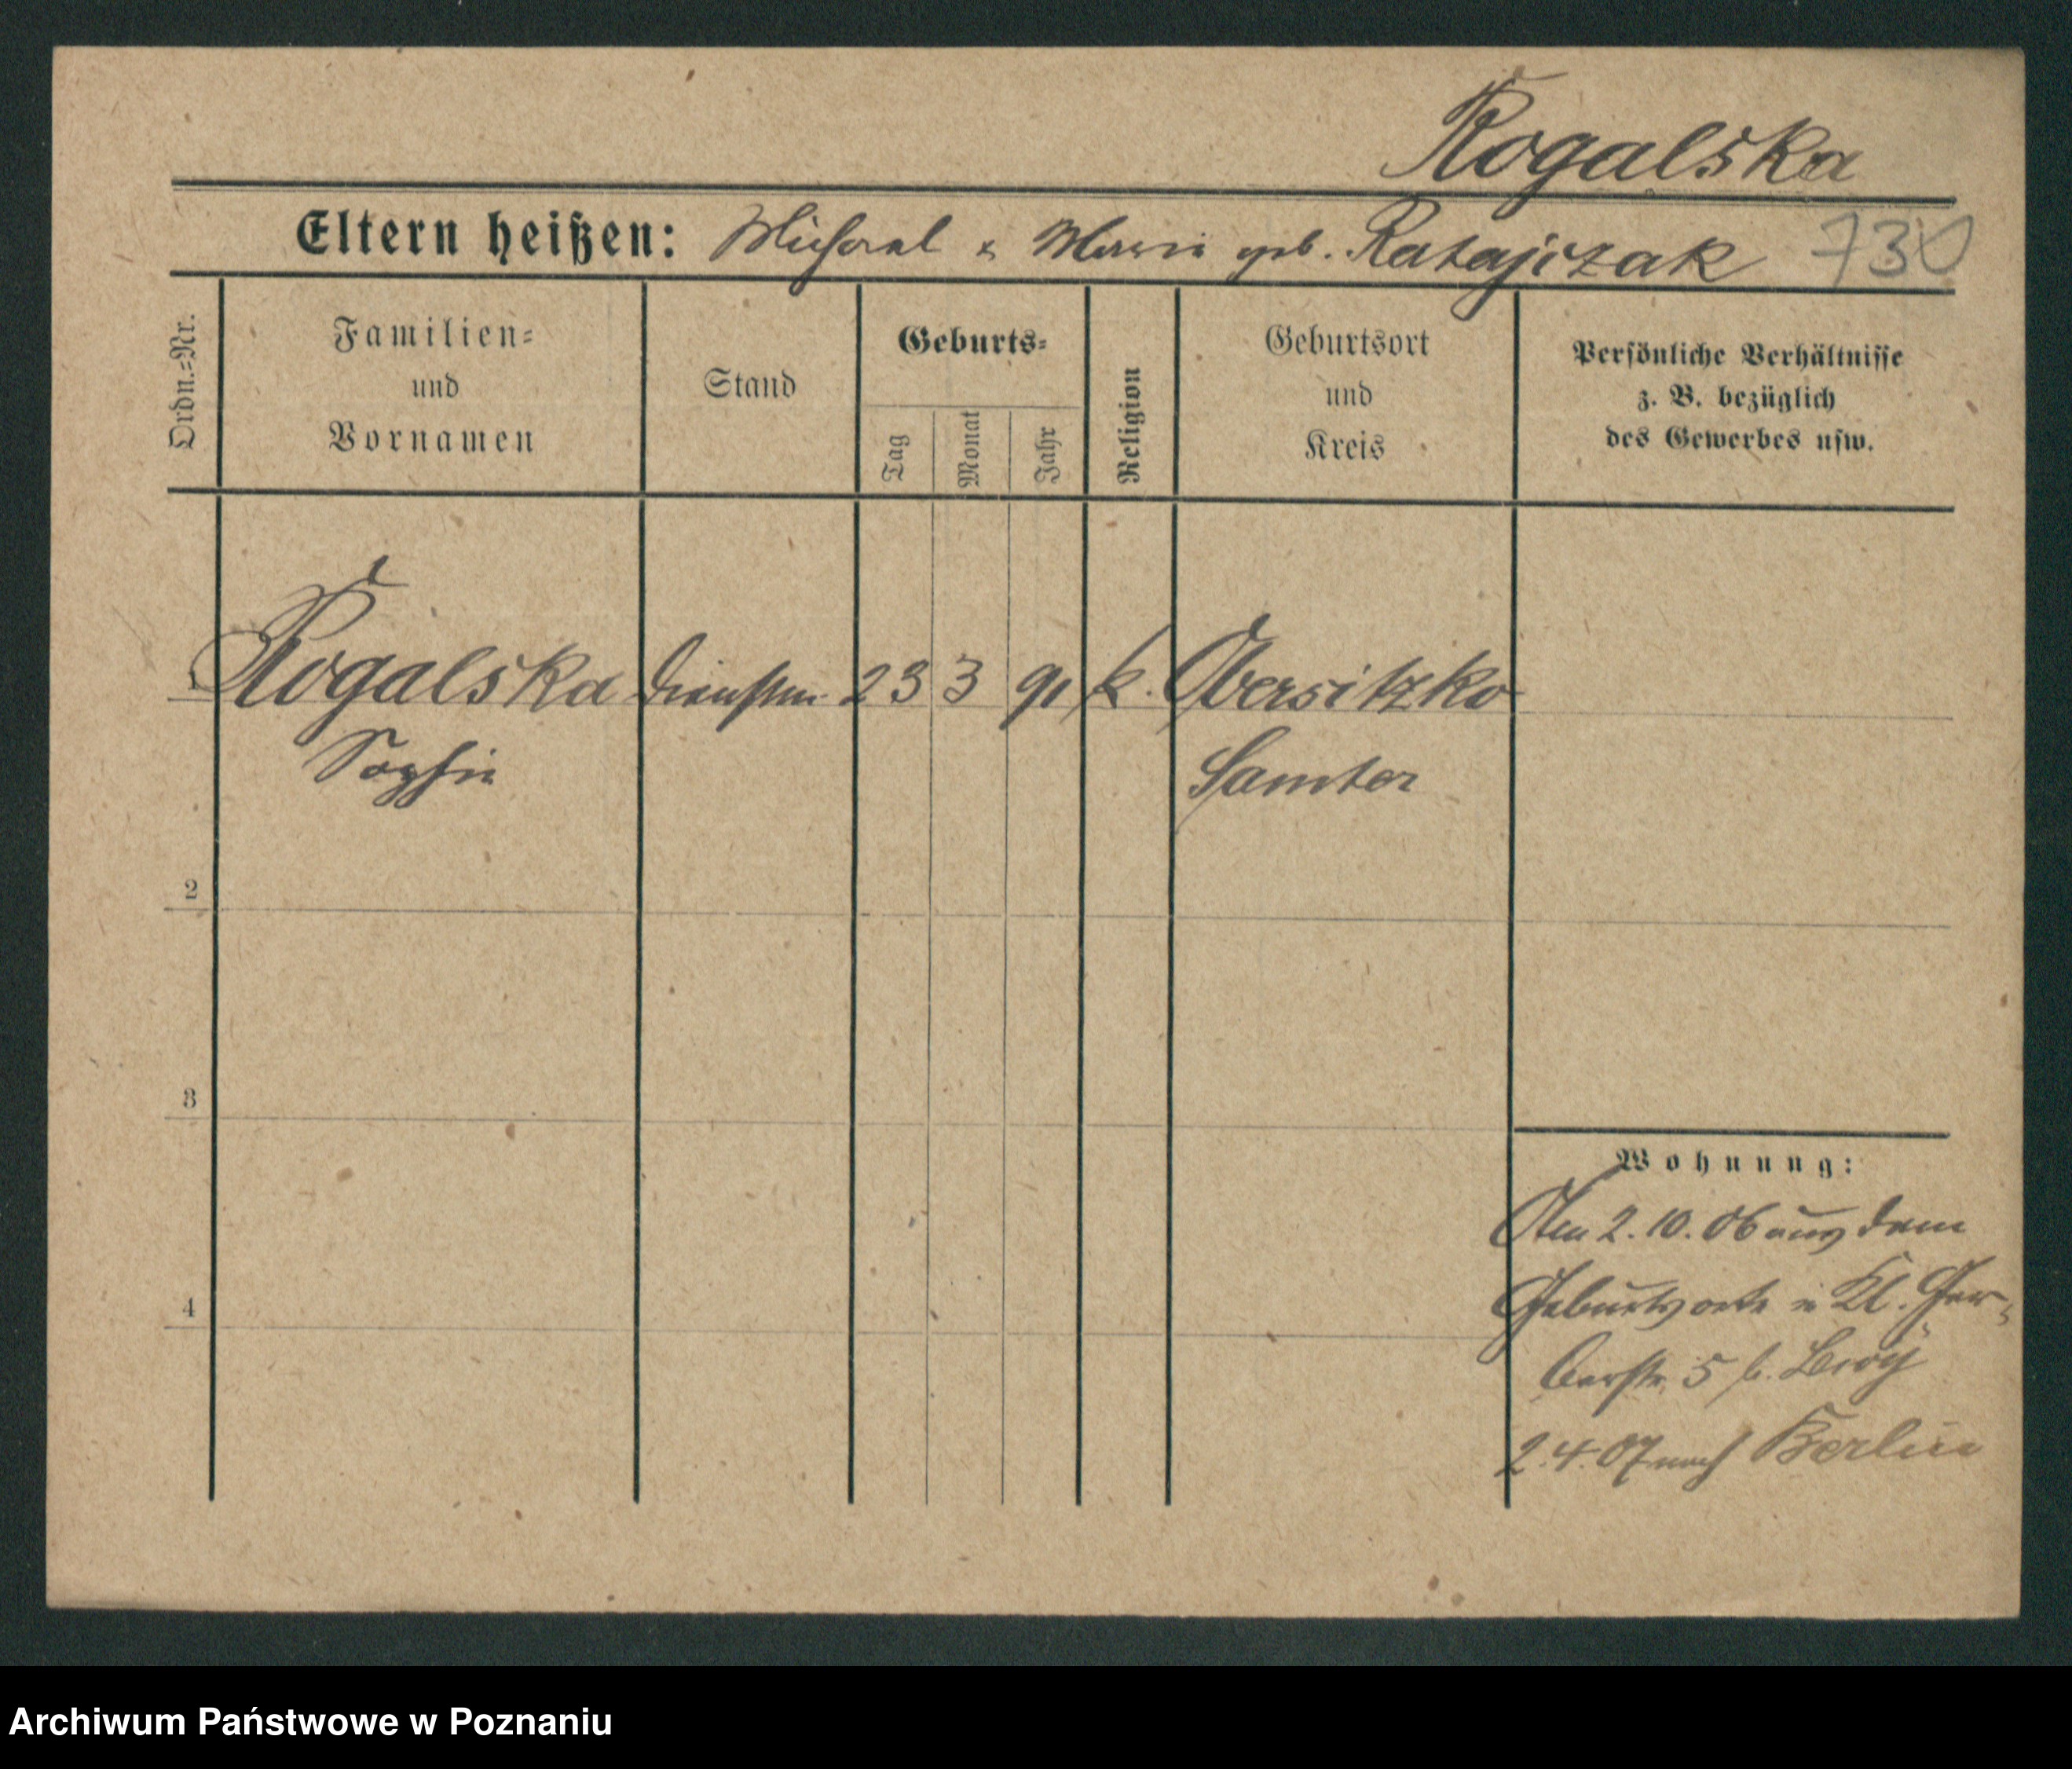 Rogalska
Eltern heißen: Michael & Marie geb. Ratajczak 730
Ordn.-Nr.
Familien-
und
Vornamen
Stand
Geburts-
Tag
Monat
Jahr
Religion
Geburtsort
und
Kreis
Persönliche Verhältnisse
z. B. bezüglich
des Gewerbes usw.
1 Rogalska Dienstm. 23 3 91 k. Obersitzko
Sophie Samter
2
3
4
Wohnung:
Am 2.10.06 aus dem
Geburtsorte n Kl. Ger-
berstr. 5 b.
2.4.07 nach Berlin
Archiwum Państwowe w Poznaniu